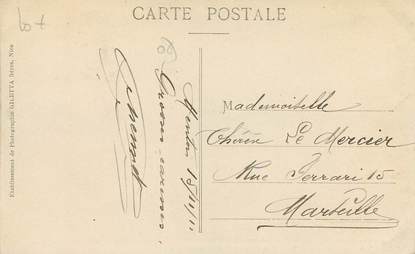 CARTE POSTALE
Etablissement de Photographie GILETTA frères, Nice
Menton 15/11/11
Grosses caresses
Mademoiselle
Thérèse Le Mercier
Rue Ferrari 15
Marseille